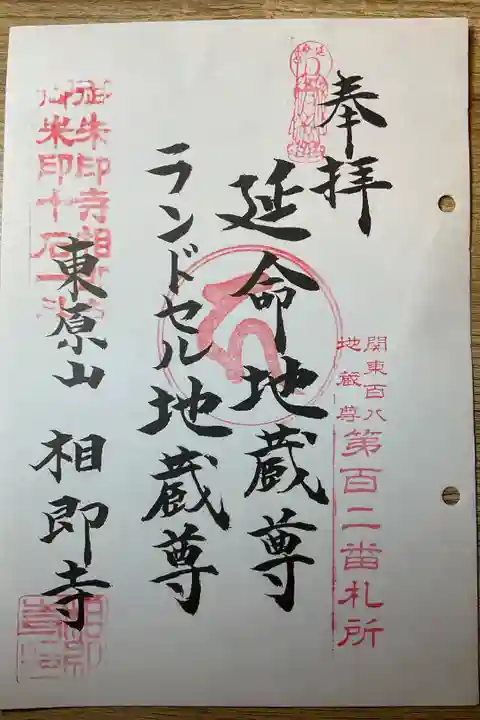 奉拝
延命地蔵尊
ランドセル地蔵尊
東原山 相即寺
関東百八
地蔵尊
第百二番札所
御朱印寺相即寺
御朱印十石